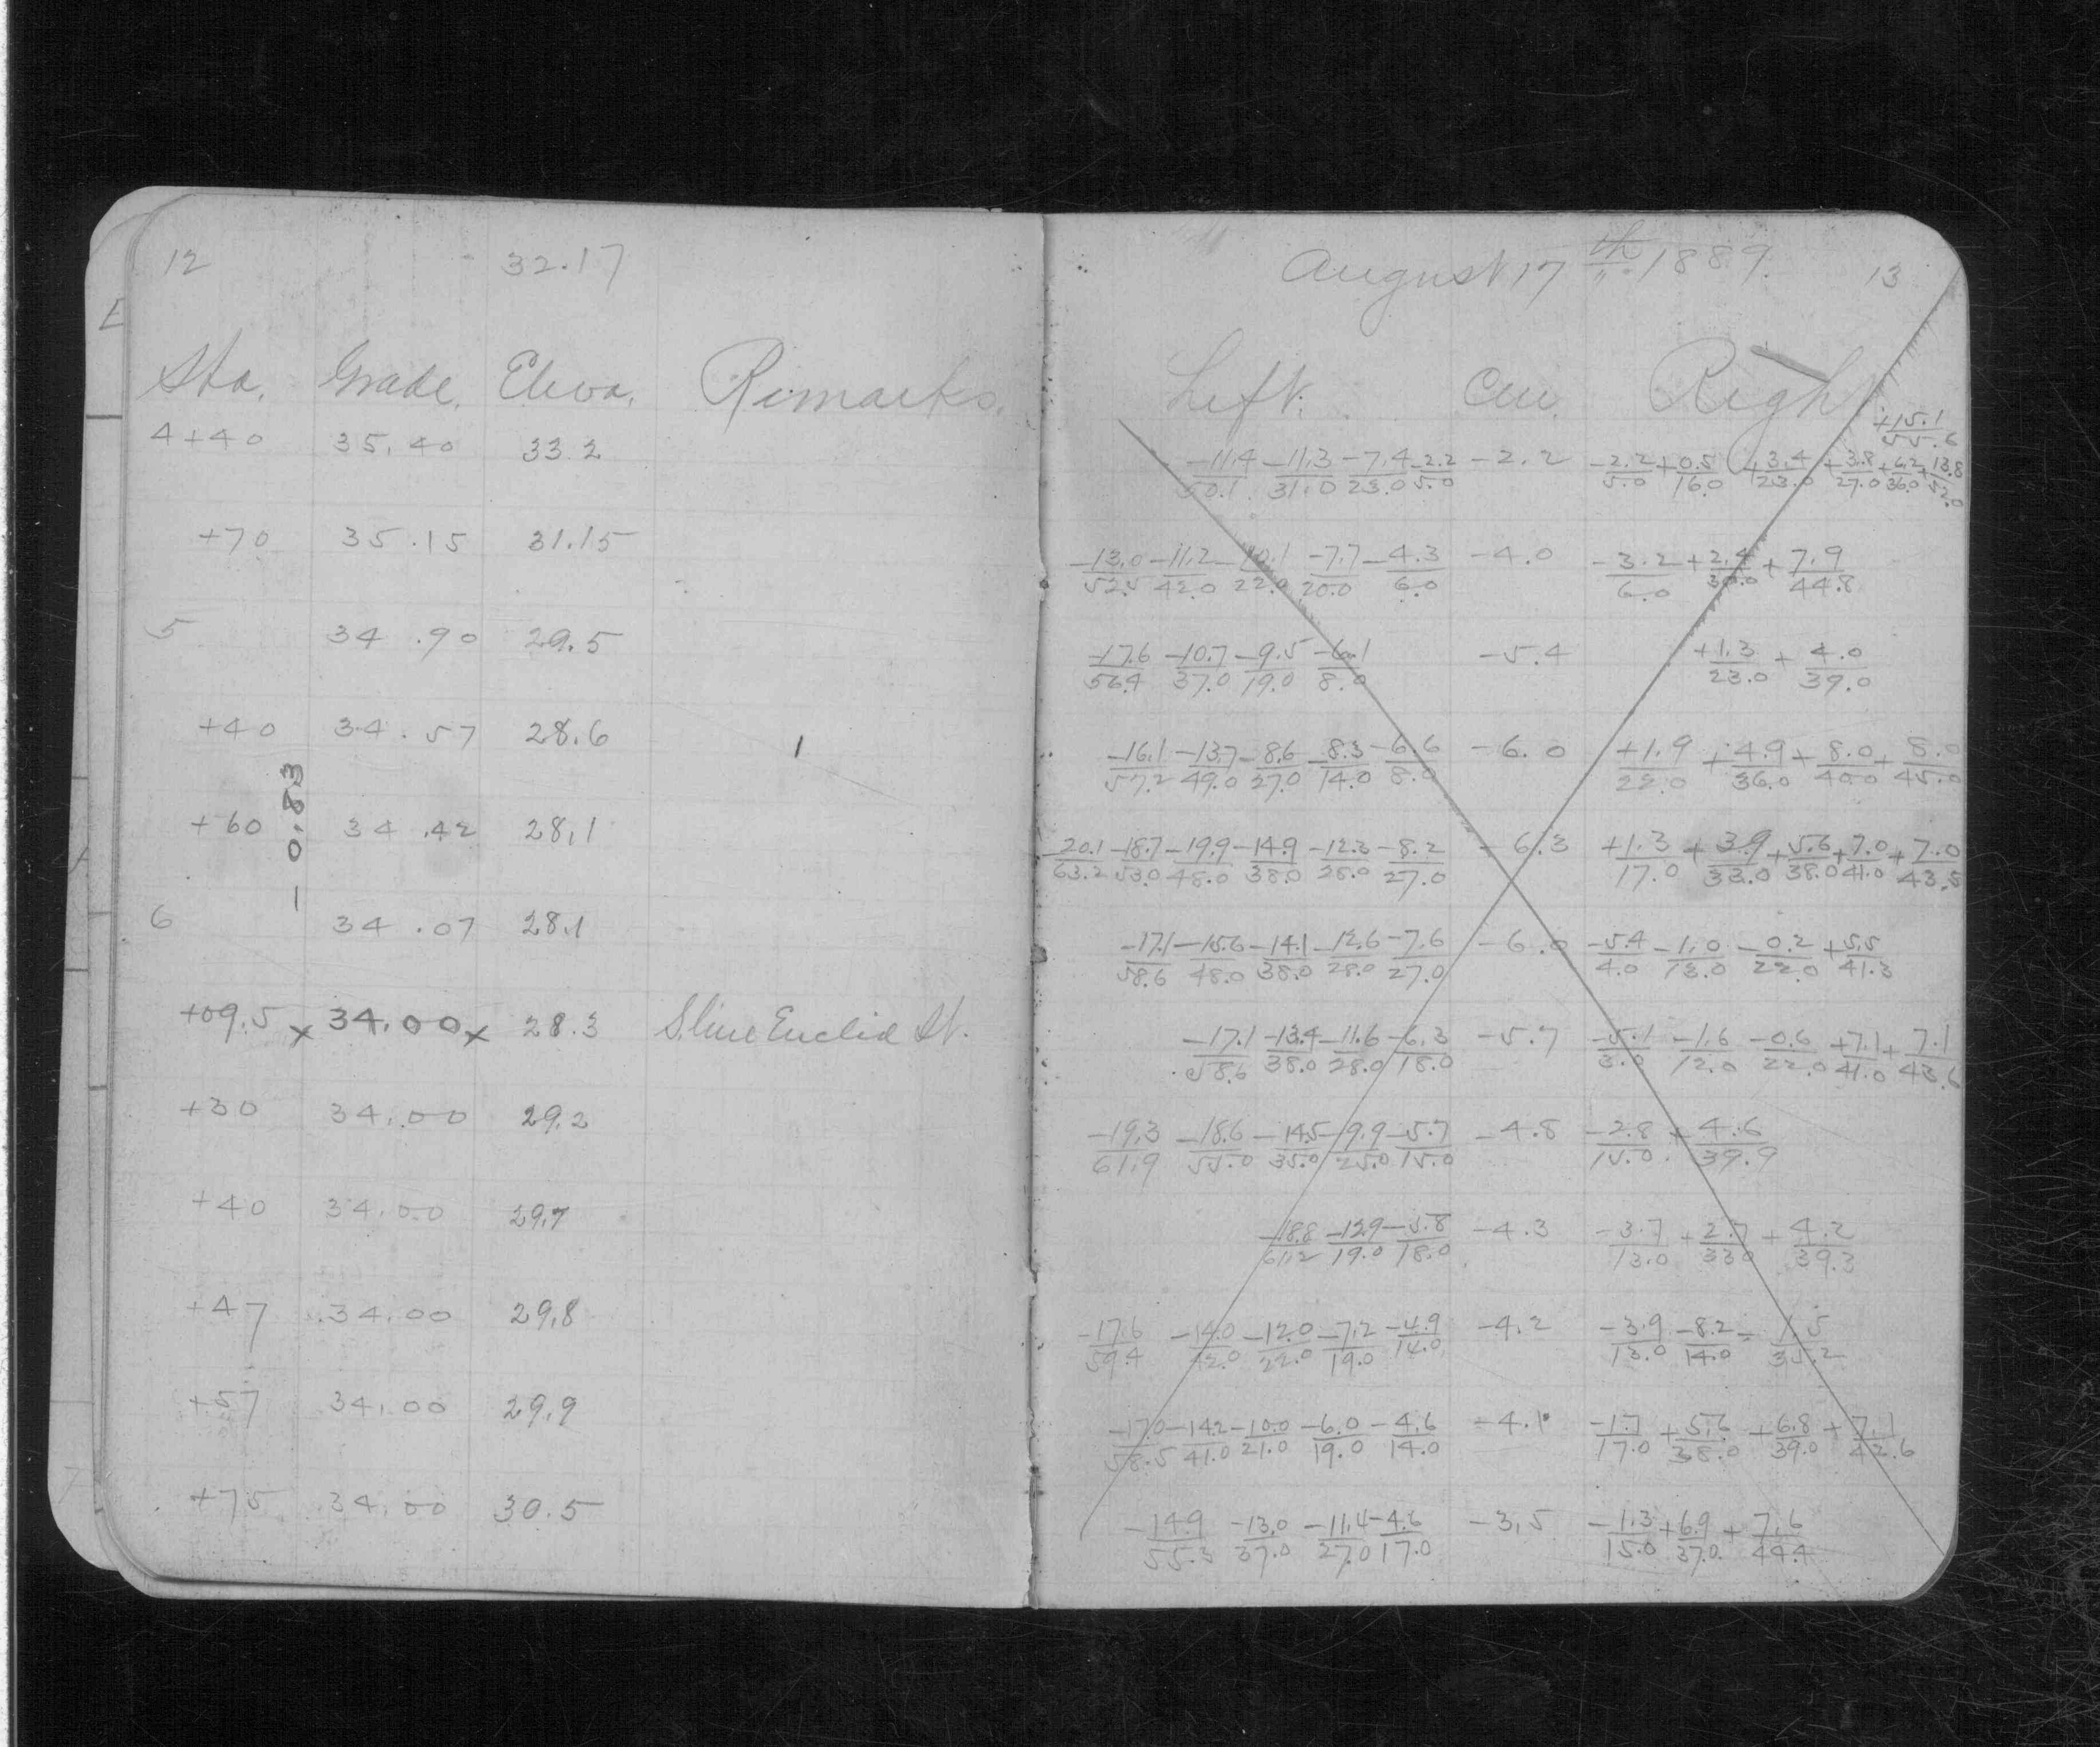 12 32.17
Sta. Grade. Eleva. Remarks.
4+40 35.40 33.2
+70 35.15 31.15
5 34.90 29.5
+40 34.57 28.6
- 0.83
+60 34.42 28.1
6 34.07 28.1
+09.5 x 34.00 x 28.3 S line Euclid St.
+30 34.00 29.2
+40 34.00 29.7
+47 34.00 29.8
+57 34.00 29.9
+75 34.00 30.5
August 17th 1889. 13
Left. Cen. Right
-11.4/50.1 -11.3/31.0 -7.4/23.0 -2.2/5.0 -2.2 -2.2/5.0 +0.5/16.0 +3.4/23.0 +3.8/27.0 +6.2/36.0 +13.8/52.0 +15.1/55.6
-13.0/52.5 -11.2/42.0 -10.1/22.0 -7.7/20.0 -4.3/6.0 -4.0 -3.2/6.0 +2.4/30.0 +7.9/44.8
-17.6/56.4 -10.7/37.0 -9.5/19.0 -6.1/8.0 -5.4 +1.3/23.0 +4.0/39.0
-16.1/57.2 -13.7/49.0 -8.6/27.0 -8.3/14.0 -6.6/8.0 -6.0 +1.9/22.0 +4.9/36.0 +8.0/40.0 +8.0/45.0
20.1/63.2 -18.7/53.0 -19.9/48.0 -14.9/38.0 -12.3/28.0 -8.2/27.0 -6.3 +1.3/17.0 +3.9/33.0 +5.6/38.0 +7.0/41.0 +7.0/43.5
-17.1/58.6 -15.6/48.0 -14.1/38.0 -12.6/28.0 -7.6/27.0 -6.0 -5.4/4.0 -1.0/13.0 -0.2/22.0 +5.5/41.3
-17.1/58.6 -13.4/38.0 -11.6/28.0 -6.3/18.0 -5.7 -5.1/3.0 -1.6/12.0 -0.6/22.0 +7.1/41.0 +7.1/43.6
-19.3/61.9 -18.6/55.0 -14.5/35.0 -9.9/25.0 -5.7/15.0 -4.8 -2.8/15.0 +4.6/39.9
-18.8/61.2 -12.9/19.0 -5.8/18.0 -4.3 -3.7/13.0 +2.7/33.0 +4.2/39.3
-17.6/59.4 -14.0/42.0 -12.0/22.0 -7.2/19.0 -4.9/14.0 -4.2 -3.9/13.0 -8.2/14.0
-17.0/58.5 -14.2/41.0 -10.0/21.0 -6.0/19.0 -4.6/14.0 -4.1 -1.7/17.0 +5.6/38.0 +6.8/39.0 +7.1/42.6
-14.9/55.3 -13.0/37.0 -11.4/27.0 -4.6/17.0 -3.5 -1.3/15.0 +6.9/37.0 +7.6/44.4